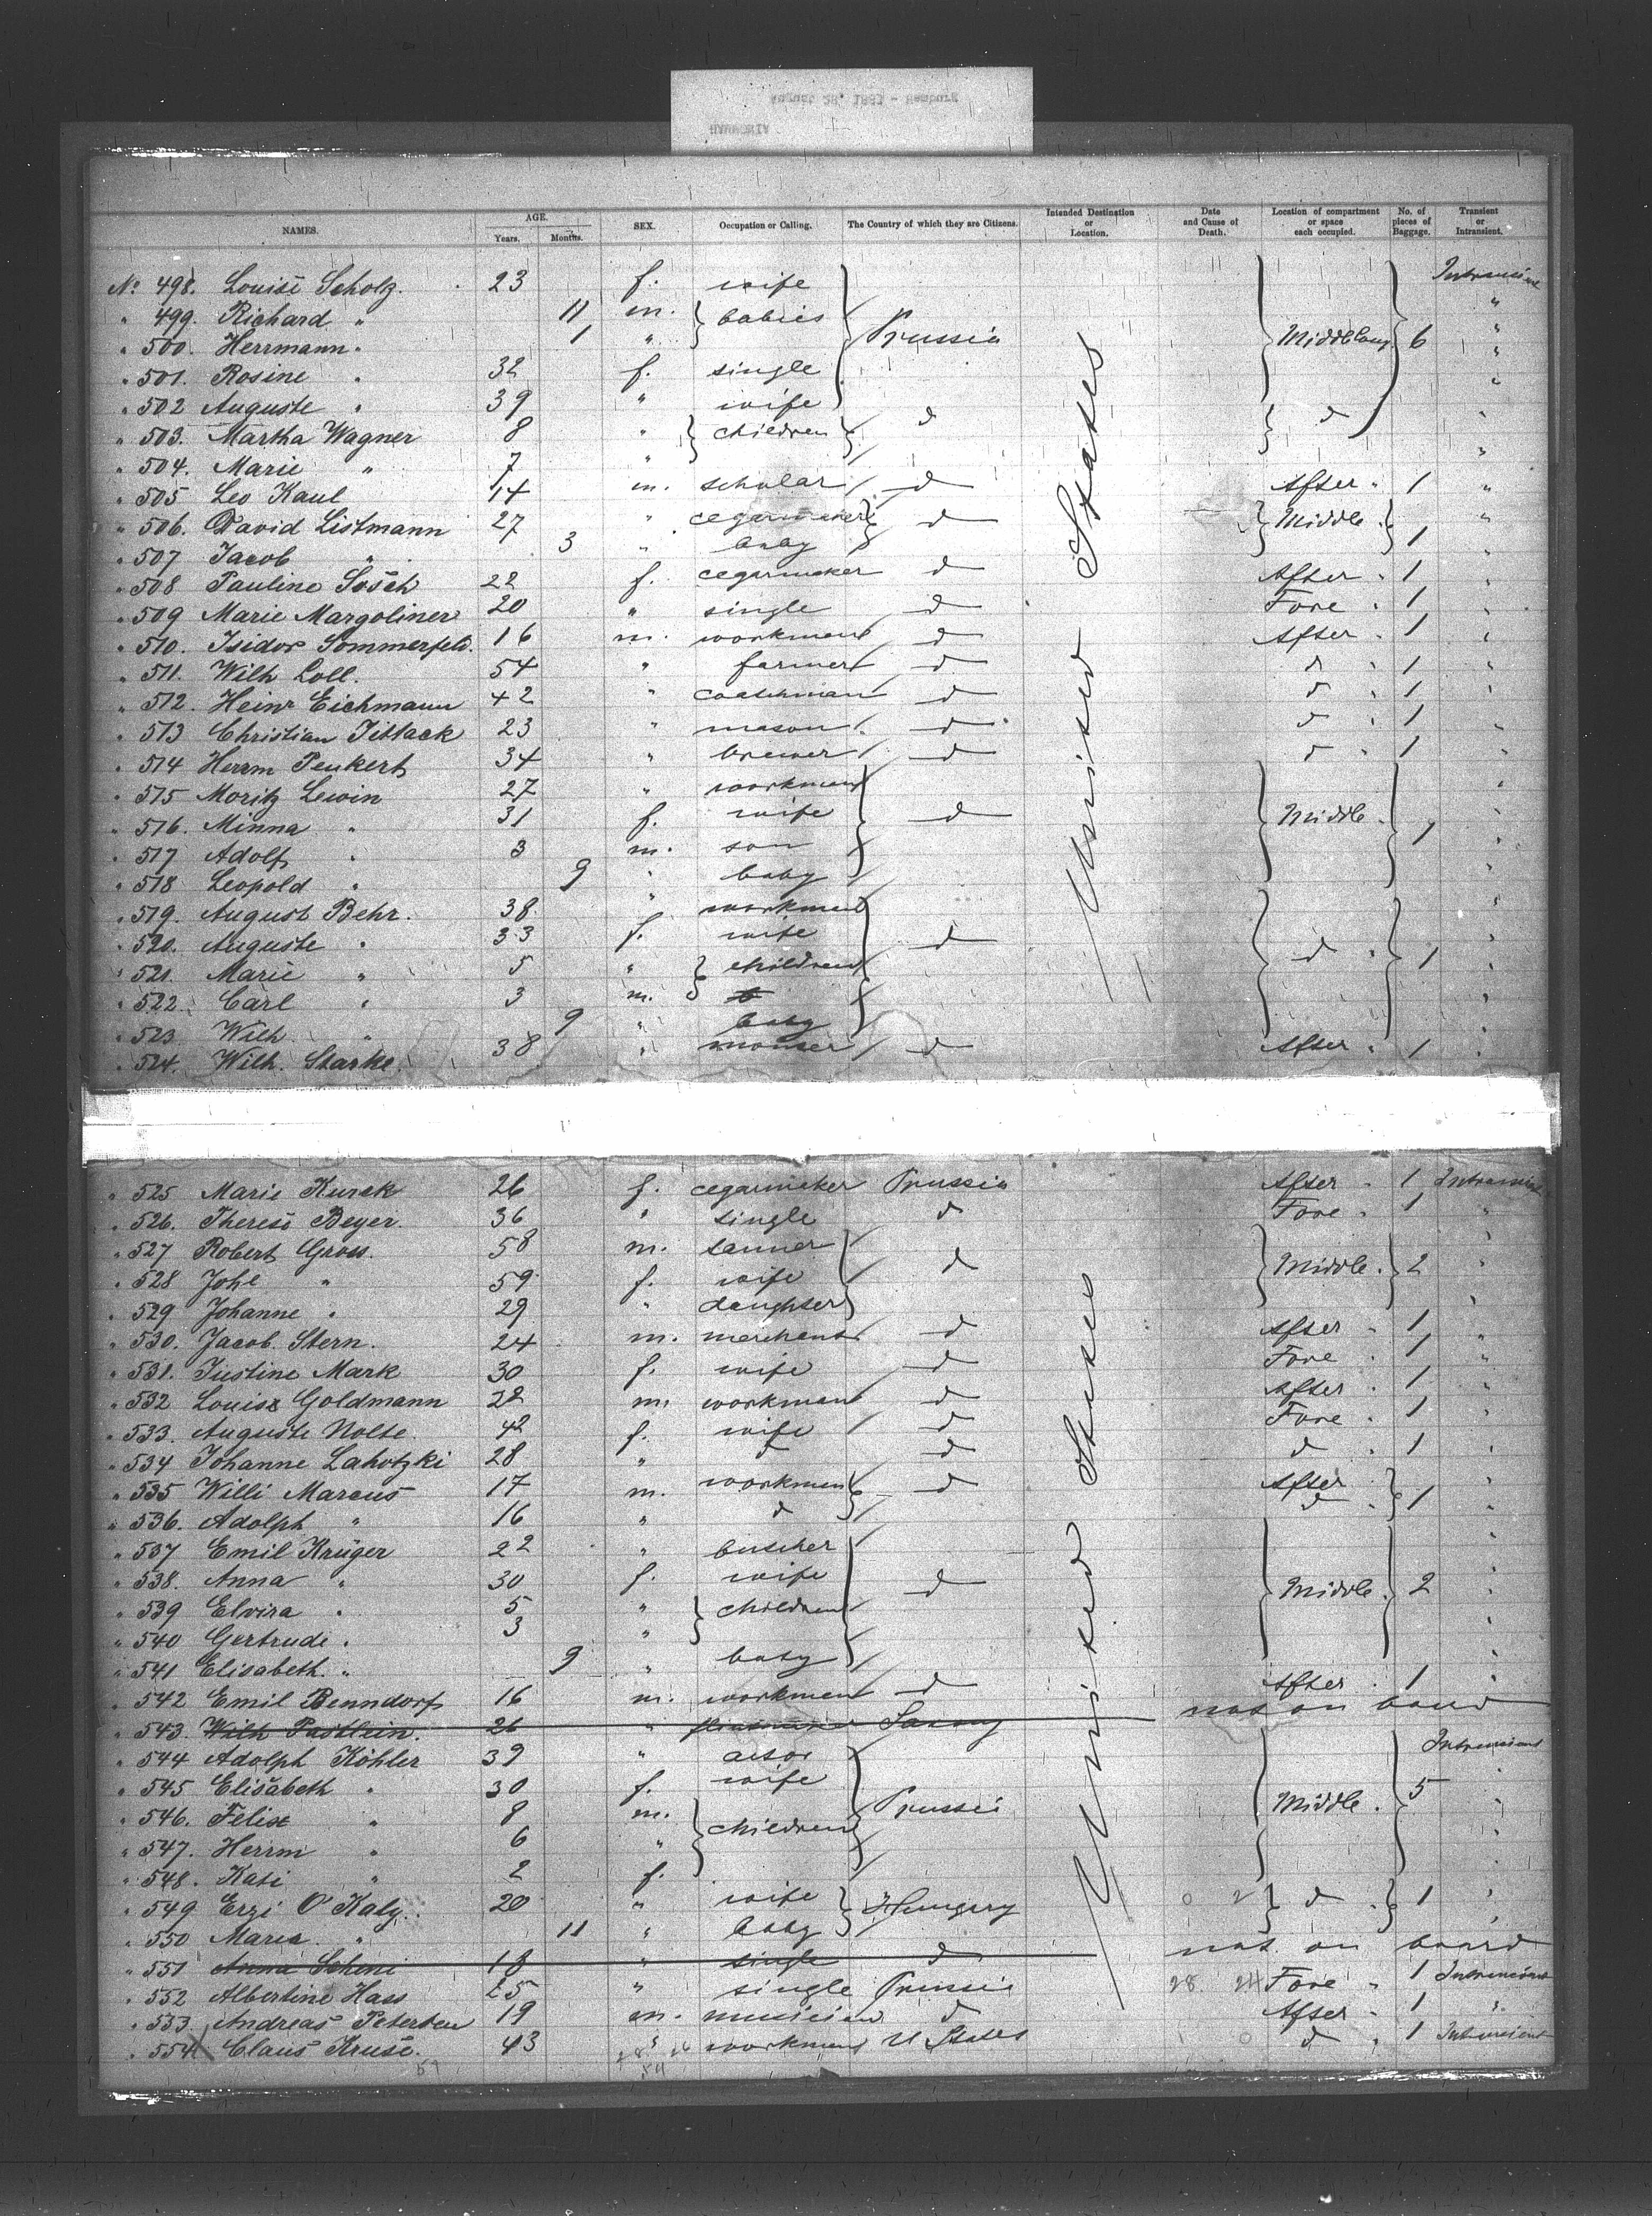 August 28, 1891 - Hamburg
HAMMONIA
NAMES. AGE. Years. Months. SEX. Occupation or Calling. The Country of which they are Citizens. Intended Destination or Location. Date and Cause of Death. Location of compartment or space each occupied. No. of pieces of Baggage. Transient or Intransient.
No 498. Louise Scholz. 23 f. wife
" 499. Richard " 11 m. babies "
" 500. Herrmann " 1 " Prussia 6 "
" 501. Rosine " 32 f. single "
" 502 Auguste " 39 " wife d d "
" 503. Martha Wagner 8 " children "
" 504. Marie " 7 " "
" 505 Leo Kaul 14 m. scholar d After " 1 "
" 506. David Listmann 27 " cegarmaker d Middle "
" 507 Jacob " 3 " baby 1 "
" 508 Pauline 22 f. cegarmaker d After " 1 "
" 509 Marie Margoliner 20 " single d Fore " 1 "
" 510. Isidor Sommerfeld. 16 m. workman d After " 1 "
" 511. Wilh Loll. 54 " farmer d d " 1 "
" 512. Heinr Eichmann 42 " coatchman d d " 1 "
" 513 Christian Tittack 23 " mason d d " 1 "
" 514 Herrm Peukert 34 " brewer d d " 1 "
" 515 Moritz Lewin 27 " workman "
" 516. Minna " 31 f. wife d Middle "
" 517 Adolf " 3 m. son 1 "
" 518 Leopold " 9 " baby "
" 519. August Behr. 38 " workman "
" 520. Auguste " 33 f. wife d d "
" 521. Marie " 5 " children 1 "
" 522. Carl " 3 m. "
" 523 Wilh " 9 " baby "
" 524. Wilh. Starke 38 " d After " 1 "
United States
" 525 Marie Kurek 26 f. cegarmaker Prussia After " 1 Intransient
" 526. Therese Beyer 36 " single d Fore " 1 "
" 527 Robert Gross. 58 m. tanner "
" 528 Johe " 59 f. wife d Middle 2 "
" 529 Johanne " 29 " daughter "
" 530. Jacob Stern. 24 m. merchant d After " 1 "
" 531. Justine Mark 30 f. wife d Fore " 1 "
" 532 Louis Goldmann 22 m. workman d After " 1 "
" 533. Auguste Nolte 42 f. wife d Fore " 1 "
" 534 Johanne Lahotzki 28 " d d d " 1 "
" 535 Willi Marcus 17 m. workman d After "
" 536. Adolph " 16 " d d " 1 "
" 537 Emil Krüger 22 " butcher "
" 538. Anna " 30 f. wife d Middle 2 "
" 539 Elvira " 5 " children "
" 540 Gertrude " 3 " "
" 541 Elisabeth " 9 " baby "
" 542 Emil Benndorf 16 m. workman d After " 1 "
" 543. Wilh 26 " Saxony not on board
" 544 Adolph Köhler 39 " actor Intransient
" 545 Elisabeth " 30 f. wife 5 "
" 546. Felix " 8 m. children Prussia Middle "
" 547. Herrm " 6 " "
" 548. Kati " 2 f. "
" 549 Erzi O'Katy 20 " wife Hungary d " 1 "
" 550 Maria " 11 " baby "
" 551 Anna 18 " single d not on board
" 552 Albertine Hass 25 " single Prussia 28. 24 Fore " 1 Intransient
" 553 Andreas Petersen 19 m. musician d After " 1 "
" 554 Claus Kruse. 43 " workman U States d " 1 Intransient
United States